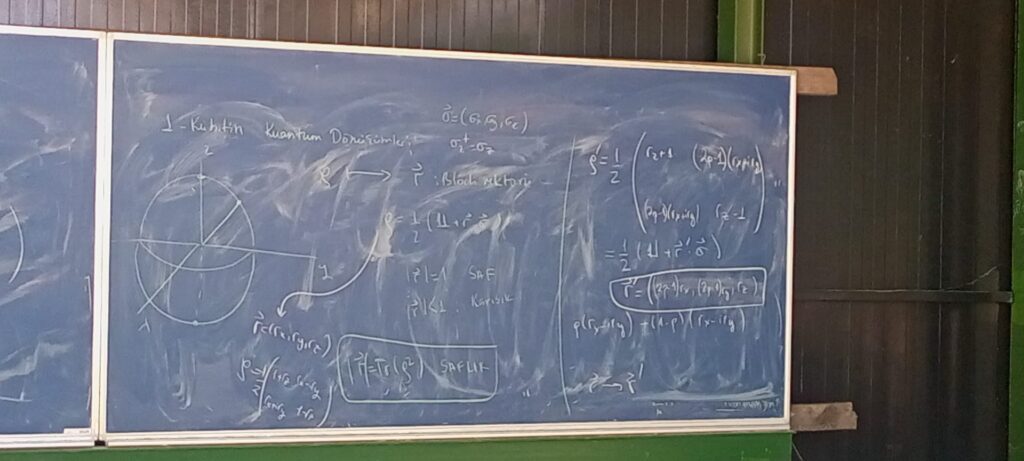 1-Kubitin Kuantum Dönüşümleri
σ⃗=(σx,σy,σz)
z
ρ → r⃗ : Bloch vektörü
ρ=1/2 (𝟙+r⃗·σ⃗)
|r⃗|=1 SAF
|r⃗|<1 Karışık
y
r⃗=(rx,ry,rz)
|r⃗|=Tr(ρ²) SAFLIK
ρ=1/2 (1+rz rx-iry
rx+iry 1-rz)
ρ'=1/2 (rz+1 (2p-1)(rx-iry)
(2p-1)(rx+iry) rz-1)
=1/2 (𝟙+r⃗'·σ⃗)
r⃗'=((2p-1)rx,(2p-1)ry,rz)
p(rx-iry)+(1-p)(rx-iry)
r⃗→r⃗'